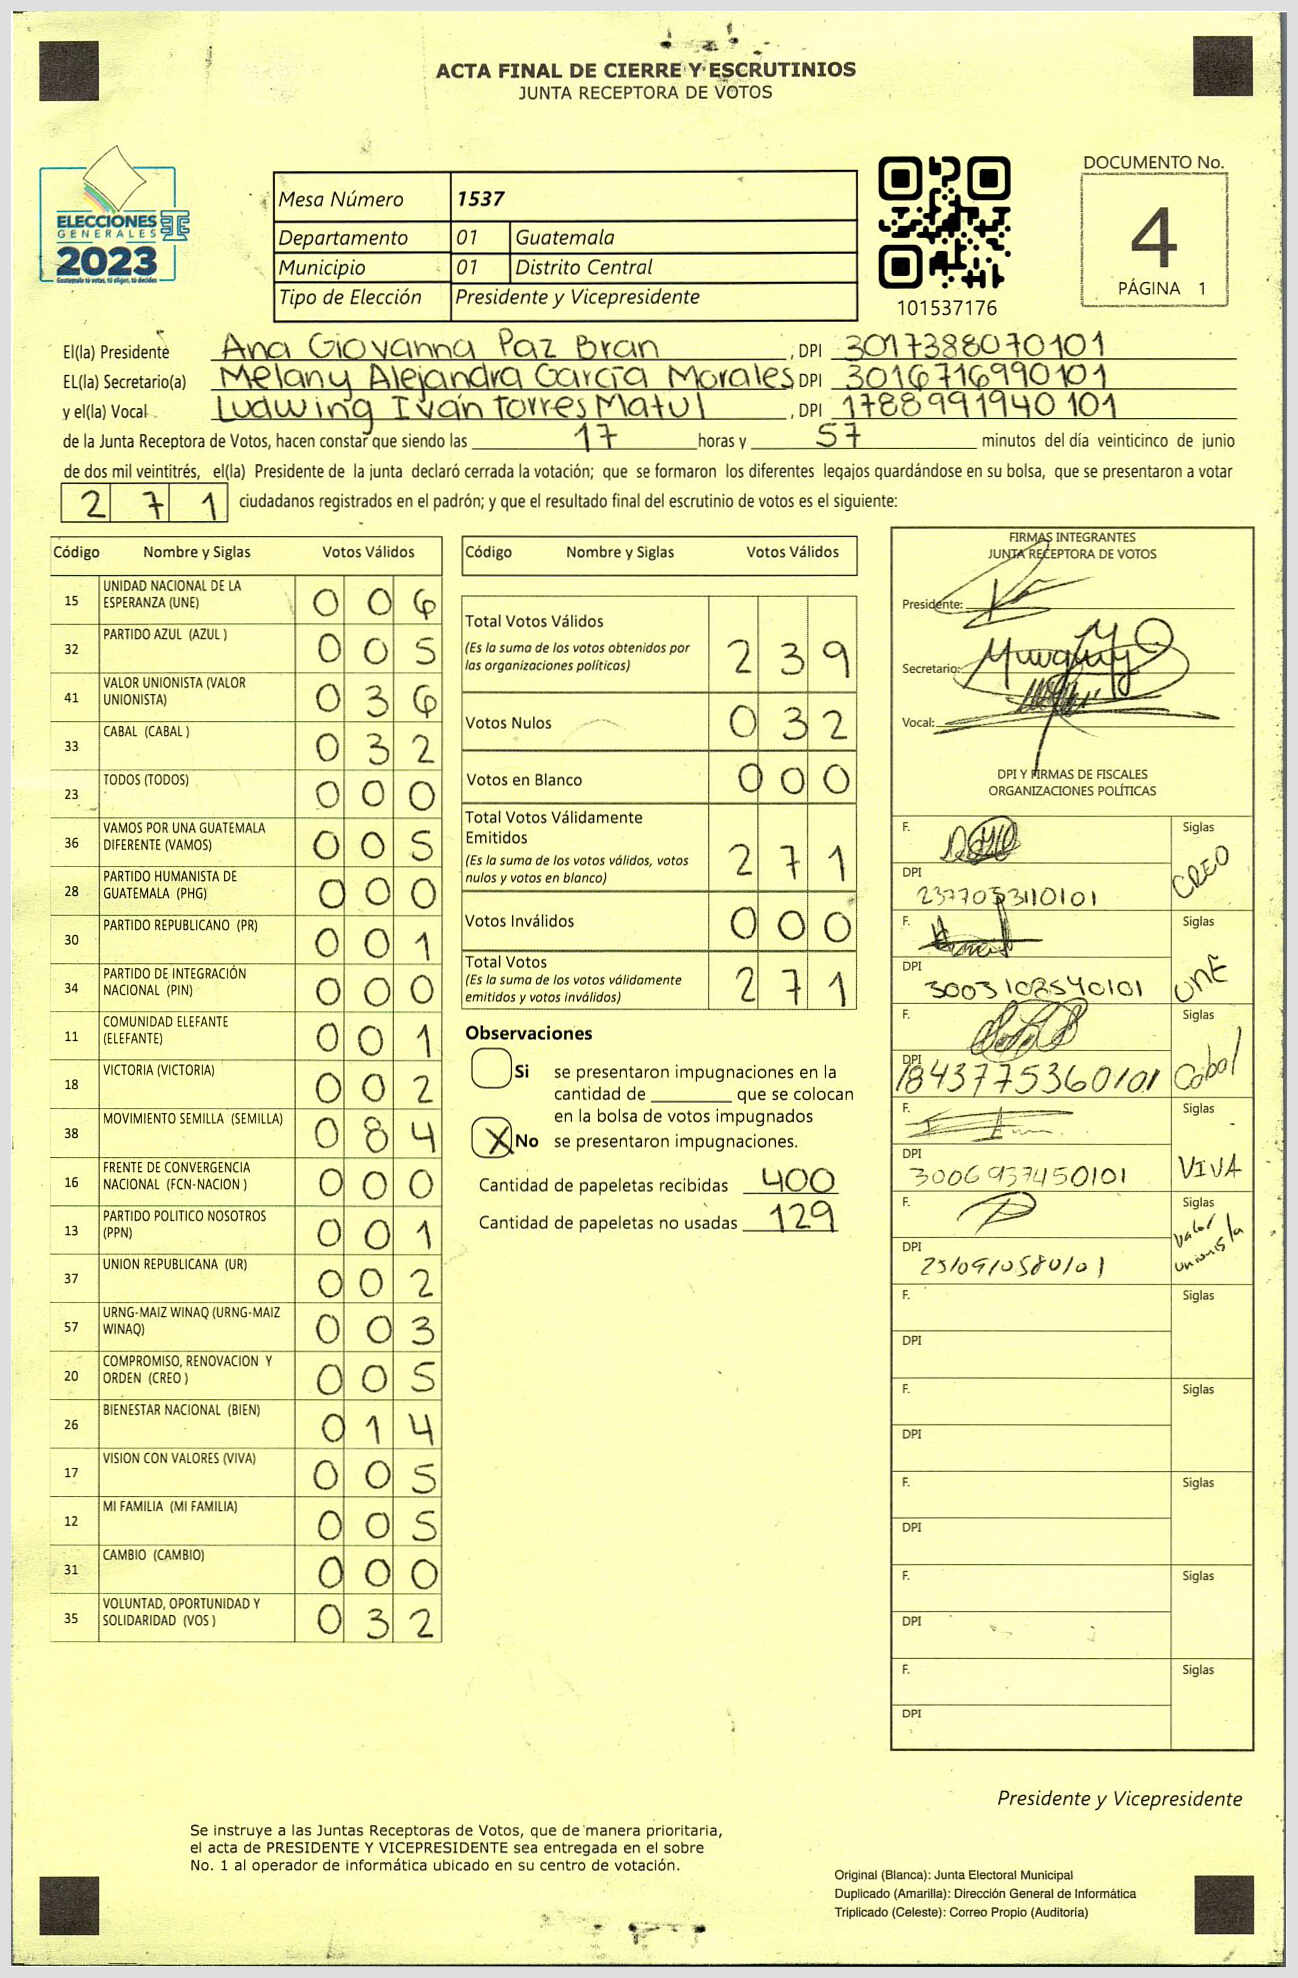 ACTA FINAL DE CIERRE Y ESCRUTINIOS
JUNTA RECEPTORA DE VOTOS
ELECCIONES
GENERALES
2023
Guatemala tú votas, tú eliges, tú decides
TSE
Mesa Número 1537
Departamento 01 Guatemala
Municipio 01 Distrito Central
Tipo de Elección Presidente y Vicepresidente
101537176
DOCUMENTO No.
4
PÁGINA 1
El(la) Presidente Ana Giovanna Paz Bran , DPI 3017388070101
EL(la) Secretario(a) Melany Alejandra García Morales DPI 3016716990101
y el(la) Vocal Ludwing Iván Torres Matul , DPI 1788991940101
de la Junta Receptora de Votos, hacen constar que siendo las 17 horas y 57 minutos del día veinticinco de junio
de dos mil veintitrés, el(la) Presidente de la junta declaró cerrada la votación; que se formaron los diferentes legajos quardándose en su bolsa, que se presentaron a votar
271 ciudadanos registrados en el padrón; y que el resultado final del escrutinio de votos es el siguiente:
Código Nombre y Siglas Votos Válidos
15 UNIDAD NACIONAL DE LA
ESPERANZA (UNE) 006
32 PARTIDO AZUL (AZUL ) 005
41 VALOR UNIONISTA (VALOR
UNIONISTA) 036
33 CABAL (CABAL ) 032
23 TODOS (TODOS) 000
36 VAMOS POR UNA GUATEMALA
DIFERENTE (VAMOS) 005
28 PARTIDO HUMANISTA DE
GUATEMALA (PHG) 000
30 PARTIDO REPUBLICANO (PR) 001
34 PARTIDO DE INTEGRACIÓN
NACIONAL (PIN) 000
11 COMUNIDAD ELEFANTE
(ELEFANTE) 001
18 VICTORIA (VICTORIA) 002
38 MOVIMIENTO SEMILLA (SEMILLA) 084
16 FRENTE DE CONVERGENCIA
NACIONAL (FCN-NACION ) 000
13 PARTIDO POLITICO NOSOTROS
(PPN) 001
37 UNION REPUBLICANA (UR) 002
57 URNG-MAIZ WINAQ (URNG-MAIZ
WINAQ) 003
20 COMPROMISO, RENOVACION Y
ORDEN (CREO ) 005
26 BIENESTAR NACIONAL (BIEN) 014
17 VISION CON VALORES (VIVA) 005
12 MI FAMILIA (MI FAMILIA) 005
31 CAMBIO (CAMBIO) 000
35 VOLUNTAD, OPORTUNIDAD Y
SOLIDARIDAD (VOS ) 032
Código Nombre y Siglas Votos Válidos
Total Votos Válidos
(Es la suma de los votos obtenidos por
las organizaciones políticas) 239
Votos Nulos 032
Votos en Blanco 000
Total Votos Válidamente
Emitidos
(Es la suma de los votos válidos, votos
nulos y votos en blanco) 271
Votos Inválidos 000
Total Votos
(Es la suma de los votos válidamente
emitidos y votos inválidos) 271
Observaciones
Si se presentaron impugnaciones en la
cantidad de ________ que se colocan
en la bolsa de votos impugnados
X No se presentaron impugnaciones.
Cantidad de papeletas recibidas 400
Cantidad de papeletas no usadas 129
FIRMAS INTEGRANTES
JUNTA RECEPTORA DE VOTOS
Presidente:
Secretario:
Vocal:
DPI Y FIRMAS DE FISCALES
ORGANIZACIONES POLÍTICAS
F. Siglas
DPI CREO
2377053110101
F. Siglas
DPI UNE
3003102540101
F. Siglas
DPI Cabal
1843775360101
F. Siglas
DPI VIVA
3006937450101
F. Siglas
DPI Valor
unionista
2510910580101
F. Siglas
DPI
F. Siglas
DPI
F. Siglas
DPI
F. Siglas
DPI
F. Siglas
DPI
Presidente y Vicepresidente
Se instruye a las Juntas Receptoras de Votos, que de manera prioritaria,
el acta de PRESIDENTE Y VICEPRESIDENTE sea entregada en el sobre
No. 1 al operador de informática ubicado en su centro de votación.
Original (Blanca): Junta Electoral Municipal
Duplicado (Amarilla): Dirección General de Informática
Triplicado (Celeste): Correo Propio (Auditoria)